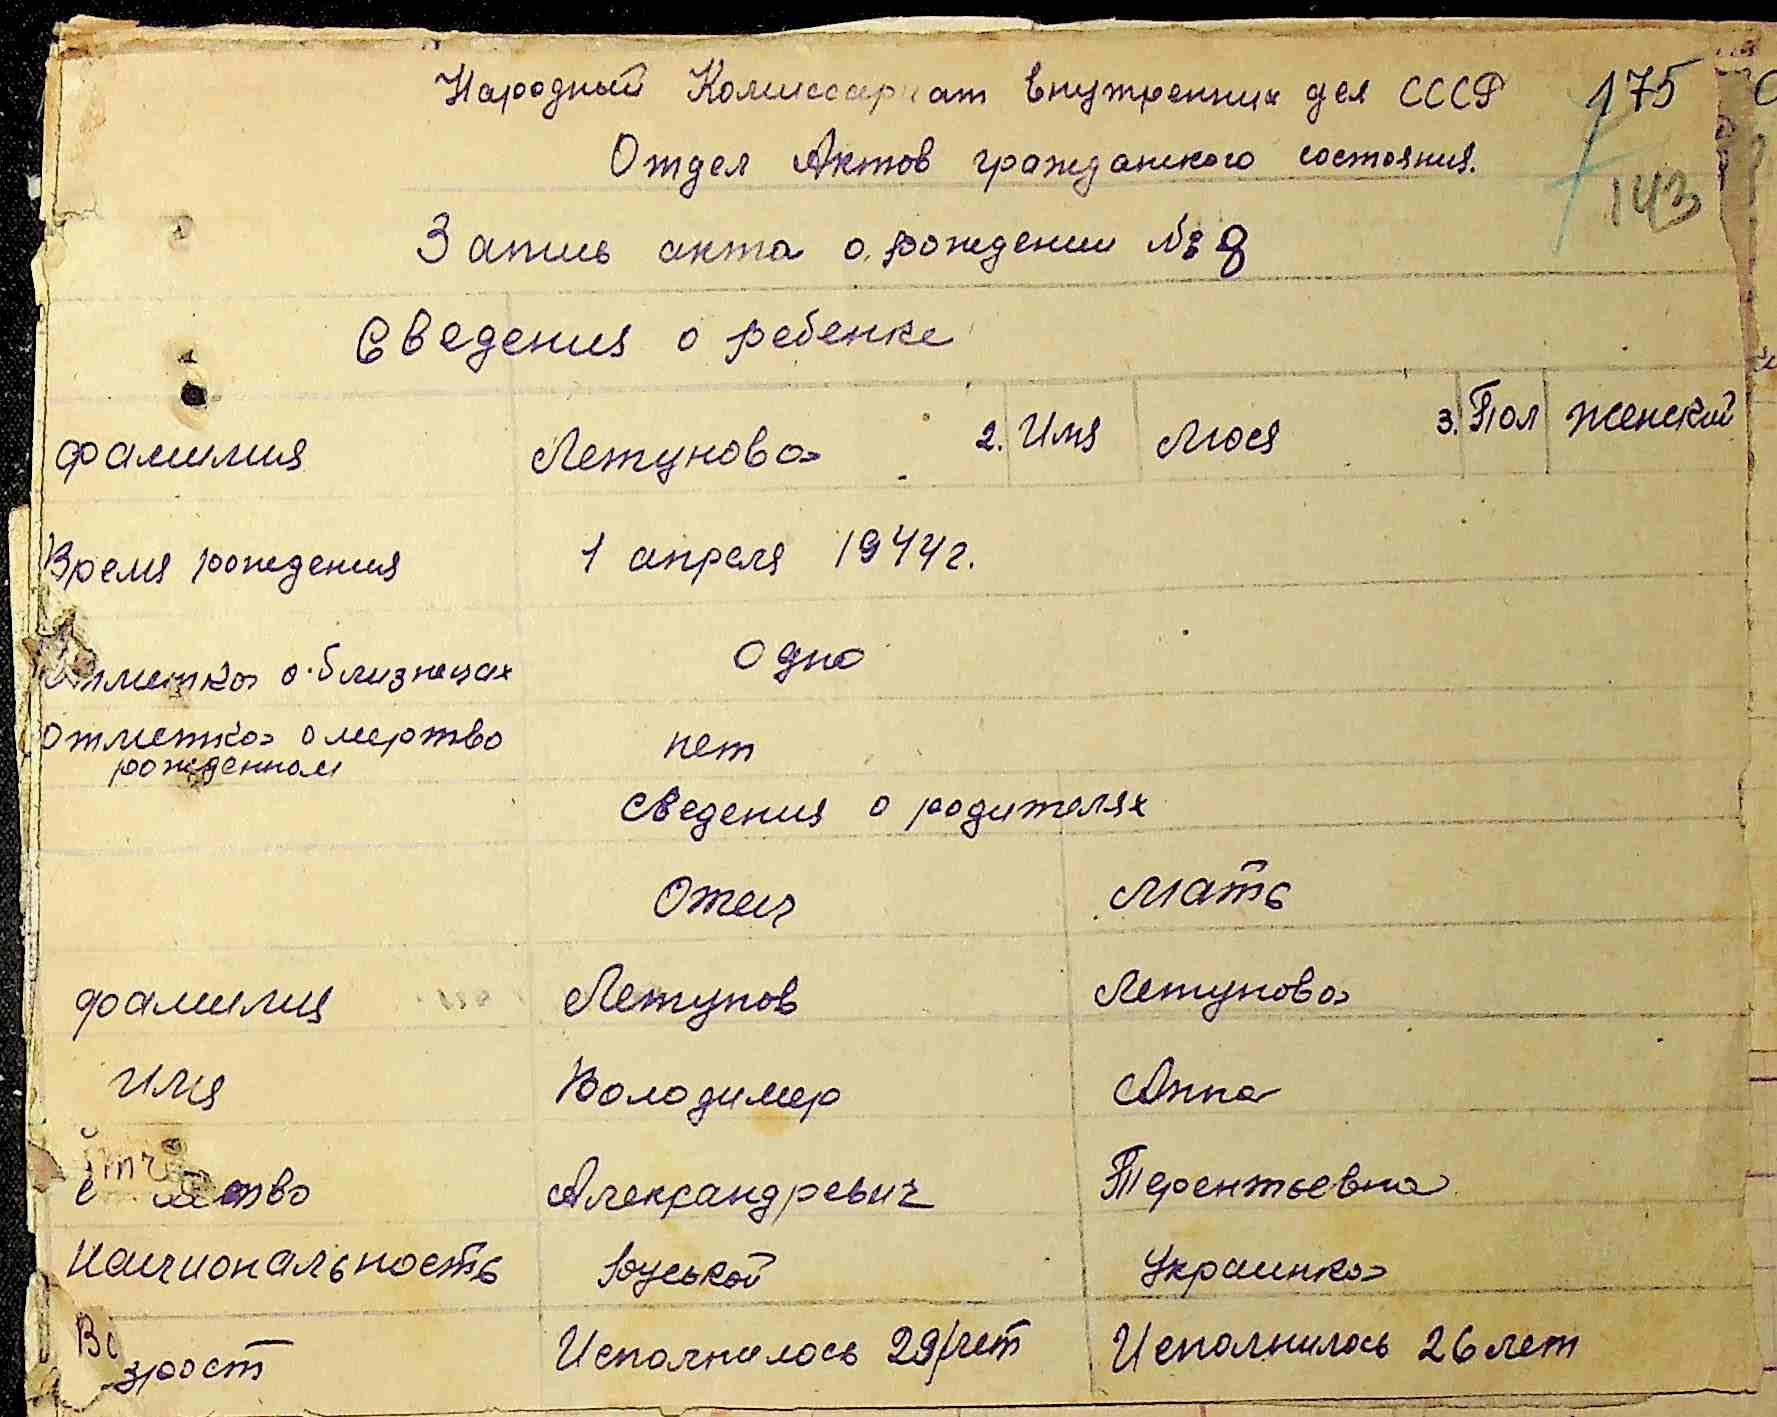 Народный Комиссариат внутренних дел СССР 175
Отдел Актов гражданского состояния.
143
Запись акта о рождении № 8
Сведения о ребенке
фамилия Летунова 2. Имя Люся 3. Пол женский
Время рождения 1 апреля 1944 г.
Отметка о близнецах одно
Отметка о мертво
рожденном нет
Сведения о родителях
Отец Мать
фамилия Летунов Летунова
имя Володимер Анна
отчество Александревич Терентьевна
Национальность Руськой Украинка
Возраст Исполнилось 29 лет Исполнилось 26 лет